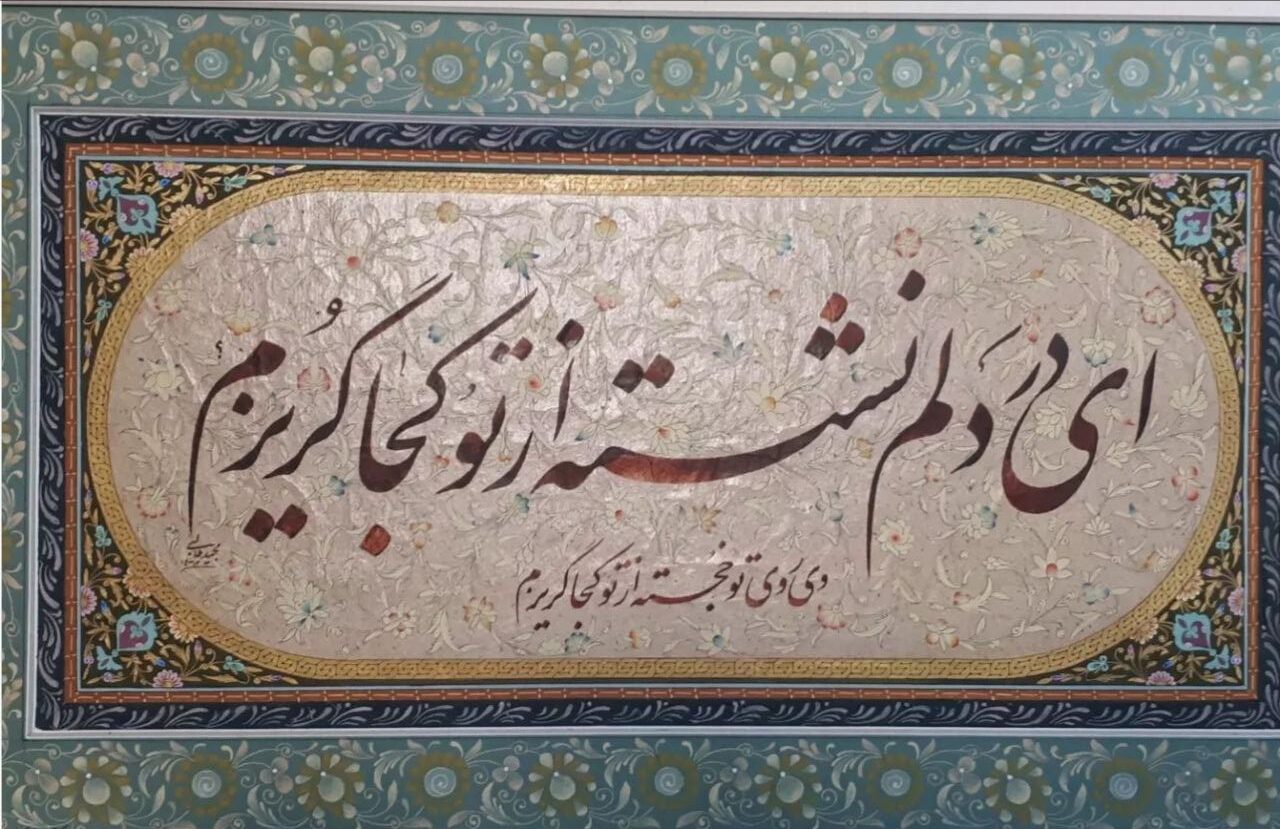 ای در دلم نشسته از تو کجا گریزم؟
وی روی تو خجسته از تو کجا گریزم